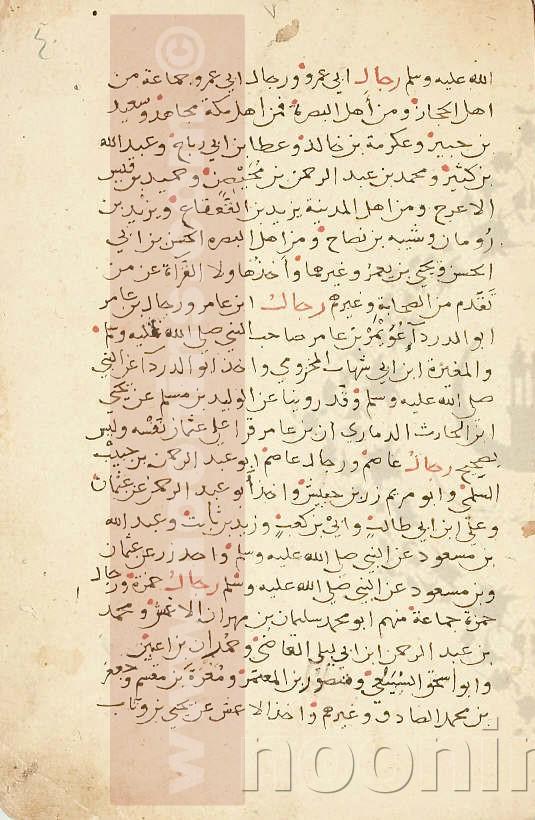 الله عليه وسلم رجال ابي عمرو ورجال ابي عمرو جماعة من
اهل الحجاز ومن اهل البصرة فمن اهل مكة مجاهد وسعيد
بن جبير وعكرمة بن خالد وعطا بن ابي رباح وعبد الله
بن كثير ومحمد بن عبد الرحمن بن محيصن وحميد بن قيس
الاعرج ومن اهل المدينة يزيد بن القعقاع ويزيد بن
رومان وشيبه بن نصاح ومن اهل البصره الحسن بن ابي
الحسن ويحيى بن يعمر وغيرهما واخذ هاولا القراة عن من
تقدم من الصحابة وغيرهم رجال ابن عامر ورجال بن عامر
ابو الدردآ عويمر بن عامر صاحب النبي صلى الله عليه وسلم
والمغيرة ابن ابي شهاب المخزومي واخذ ابو الدردآ عن النبي
صلى الله عليه وسلم وقد روينا عن الوليد بن مسلم عن يحيى
ابن الحارث الذماري ان بن عامر قرا على عثمان نفسه وليس
بصحيح رجال عاصم ورجال عاصم ابو عبد الرحمن بن حبيب
السلمي وابو مريم زر بن حبيش واخذ ابو عبد الرحمن عن عثمان
وعلي ابن ابي طالب وابي بن كعب وزيد بن ثابت وعبد الله
بن مسعود عن النبي صلى الله عليه وسلم واخذ زر عن عثمان
وبن مسعود عن النبي صلى الله عليه وسلم رجال حمزة ورجال
حمزة جماعة منهم ابو محمد سليمان بن مهران الاعمش ومحمد
بن عبد الرحمن ابن ابي ليلى القاضي وحمران بن اعين
وابو اسحق السبيعي ومنصور بن المعتمر ومغيرة بن مقسم وجعفر
بن محمد الصادق وغيرهم واخذ الاعمش عن يحيى بن وثاب
noonin